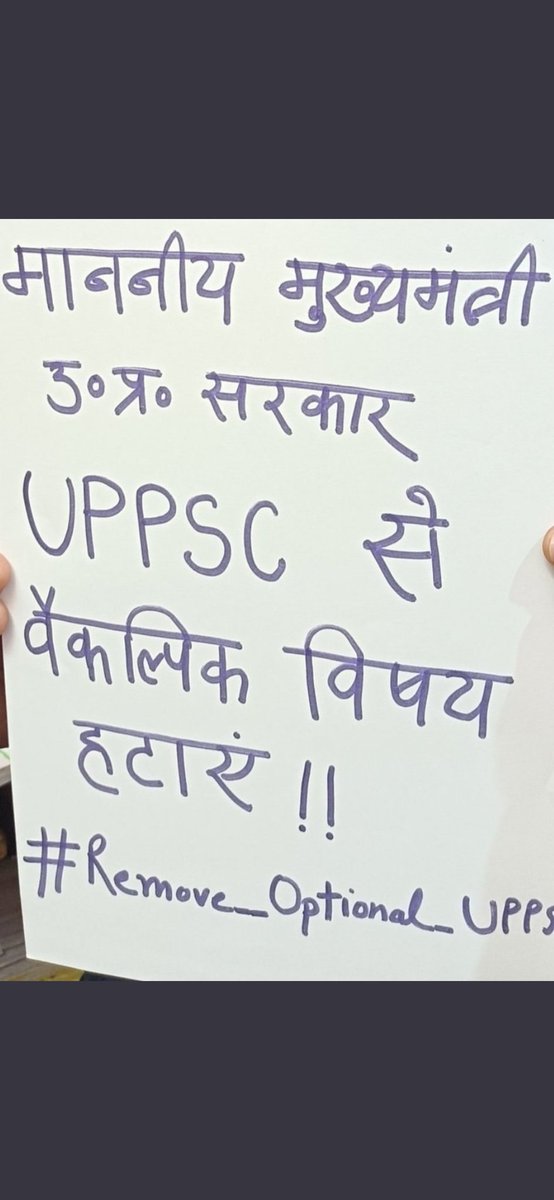 माननीय मुख्यमंत्री
उ॰ प्र॰ सरकार
UPPSC से
वैकल्पिक विषय
हटाएं !!
#Remove_Optional_UPPS